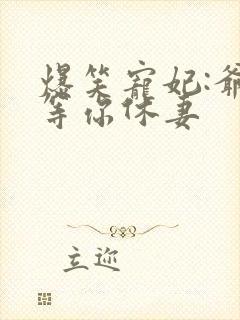 爆笑寵妃:爺
等你休妻
立迩